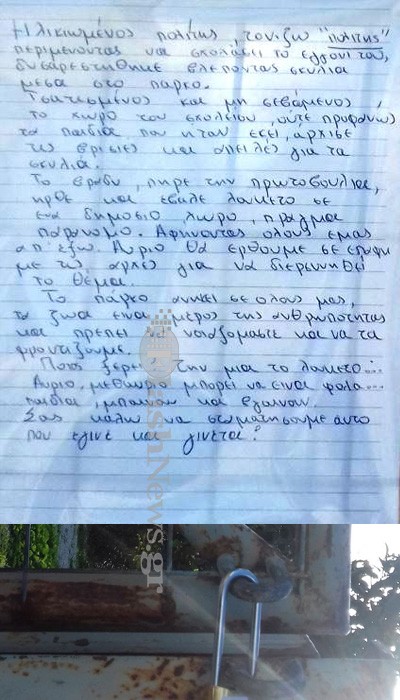 Ηλικιωμένος πολίτης, τονιζω "πολιτης"
περιμενοντας να σχολάσει το εγγονι του,
δυσάρεστήθηκε βλεποντας σκυλια
μεσα στο παρκο.
Τσατισμενος και μη σεβάμενος
το χωρο του σχολείου, ούτε προφανώς
τα παιδια που ηταν εκει, αρχισε
τις βρισιές και απειλές για τα
σκυλια.
Το βραδυ, πηρε την πρωτοβουλια,
ηρθε και εβαλε λουκετο σε
ενα δημοσιο χωρο, πραγμα
παρανομο. Αφηνοντας ολους εμας
απ'εξω. Αυριο θα ερθουμε σε επαφη
με τις αρχες για να διερευνηθεί
το θεμα.
Το πάρκο ανηκει σε ολους μας,
τα ζωα ειναι μερος της ανθρωπότητας
και πρεπει να νοιαζομαστε και να τα
φροντίζουμε.
Ποιος ξερει, την μια το λουκετο...
Αυριο, μεθαυριο μπορεί να ειναι φολα...
παιδια μπαινουν και βγαινουν.
Σας καλω να σταματησουμε αυτο
που εγινε και γινεται!
FlashNews.gr